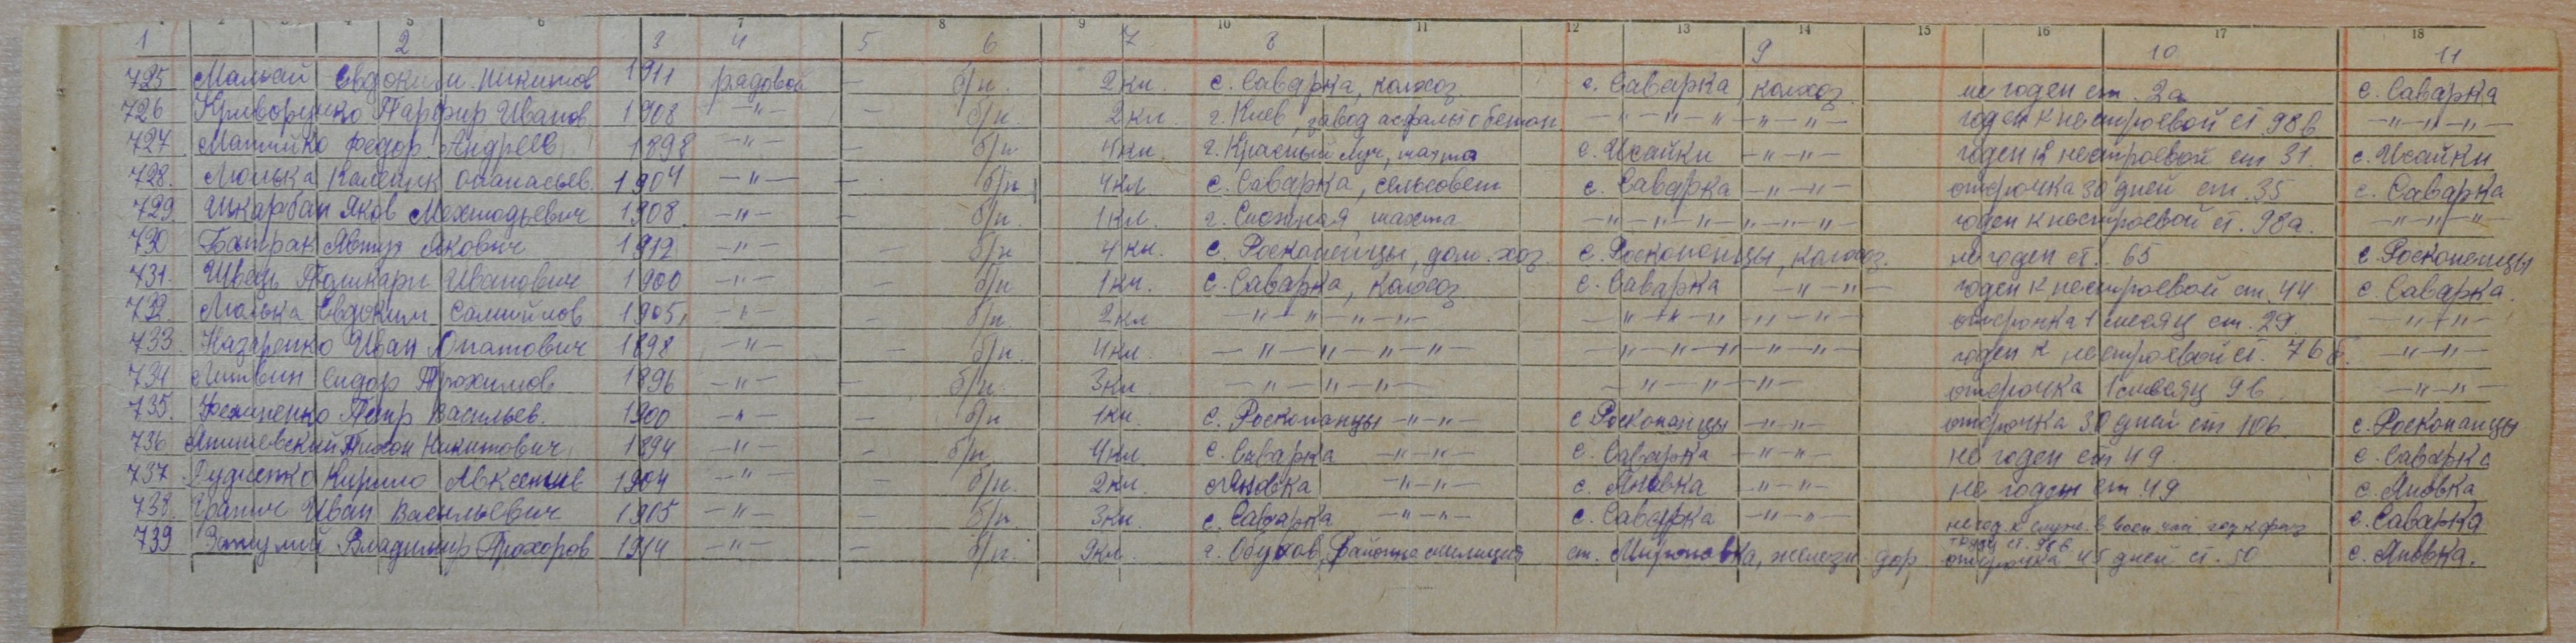 1 2 3 4 5 6 7 8 9 10 11 12 13 14 15 16 17 18
1 2 3 4 5 6 7 8 9 10 11
725 Малый Евдоким Никитов 1911 рядовой — б/п. 2кл. с. Саварка, колхоз с. Саварка, колхоз не годен ст. 2а с. Саварка
726 Криворучко Парфир Иванов 1908 —"— — б/п. 2кл. г. Киев, завод асфальтобетон —"—"—"—"—"— годен к нестроевой ст 98в —"—"—"—
727 Матийко Федор Андреев 1898 —"— — б/п 4кл. г. Красный луч, шахта с. Исайки —"—"— годен к нестроевой ст 31. с. Исайки
728. Люлька Каленик Опанасьев. 1904 —"— — б/п 4кл. с. Саварка, сельсовет с. Саварка —"—"— отсрочка 30 дней ст. 35 с. Саварка
729 Шкарбан Яков Мехтодьевич 1908 —"— — б/п. 1кл. г. Снежная шахта —"—"—"—"—"—"— годен к нестроевой ст. 98а. —"—"—"—
730 Батрак Явтух Якович 1912 —"— — б/п 4кл. с. Роскопенцы, дом. хоз. с. Роскопенцы, колхоз. не годен ст. 65 с. Роскопенцы
731. Швець Поликарп Иванович 1900 —"— — б/п 1кл. с. Саварка, колхоз с. Саварка —"—"— годен к нестроевой ст. 44. с. Саварка.
732. Люлька Евдоким Самийлов 1905 —"— — б/п 2кл —"—"—"—"— —"—"—"—"—"— отсрочка 1 месяц ст. 29. —"—"—
733. Назаренко Иван Игнатович 1898 —"— — б/п. 4кл. —"—"—"—"—"— —"—"—"—"—"— годен к нестроевой ст. 76 б. —"—"—
734 Литвин Сидор Трохимов 1896 —"— — б/п. 3кл —"—"—"—"— —"—"—"— отсрочка 1 месяц 9в —"—"—
735. Петр Васильев. 1900 —"— — б/п 1кл. с. Роскопанцы —"—"— с Роскопанцы —"—"— отсрочка 30 дней ст 10в с. Роскопанцы
736 Тихон Никитович 1894 —"— — б/п 4кл. с. Саварка —"—"— с. Саварка —"—"— не годен ст 49. с. Саварка
737. Кирило Авксентиев 1904 —"— — б/п. 2кл. с. Яновка —"—"— с. Яновка —"—"— не годен ст. 49 с. Яновка
738. Иван Васильевич 1905 —"— — б/п 3кл. с. Саварка —"—"— с. Саварка —"—"— негод. к служ. в воен. час год к физ с. Саварка
труду ст. 98в
739 Владимир Прохоров 1914 —"— — б/п 9кл г. Обухов, милиция ст. Мироновка, железн. дор. отсрочка 45 дней ст. 50 с. Яновка.